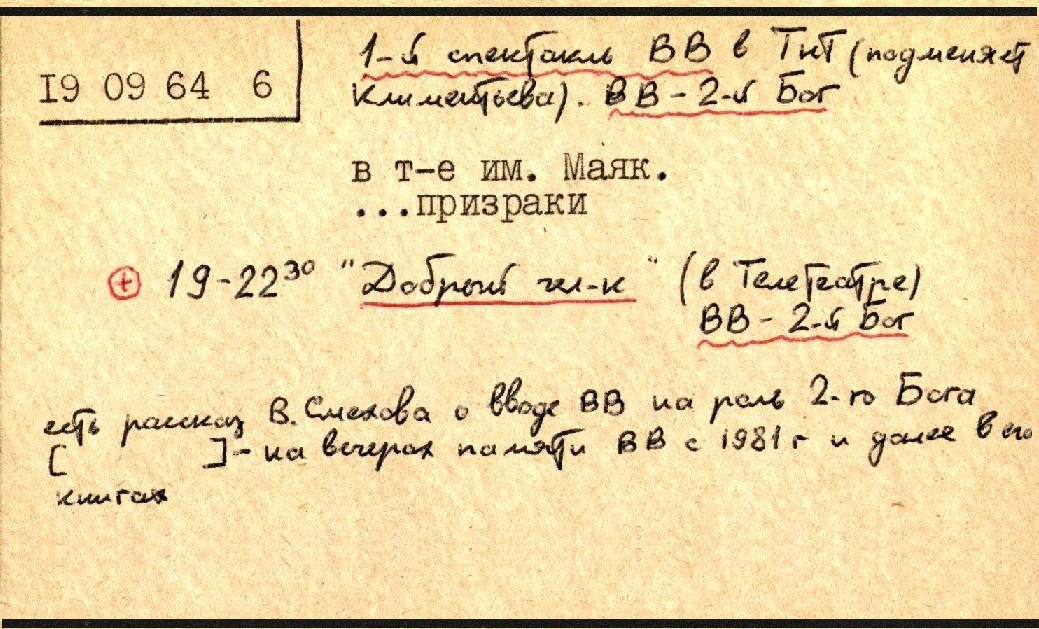 19 09 64 6
1-й спектакль ВВ в ТнТ (подменяет
Климентьева). ВВ - 2-й Бог
в т-е им. Маяк.
...призраки
+ 19-22³⁰ "Добрый чел-к" (в Телетеатре)
ВВ - 2-й Бог
есть рассказ В. Смехова о вводе ВВ на роль 2-го Бога
[ ] - на вечерах памяти ВВ с 1981 г и далее в его
книгах